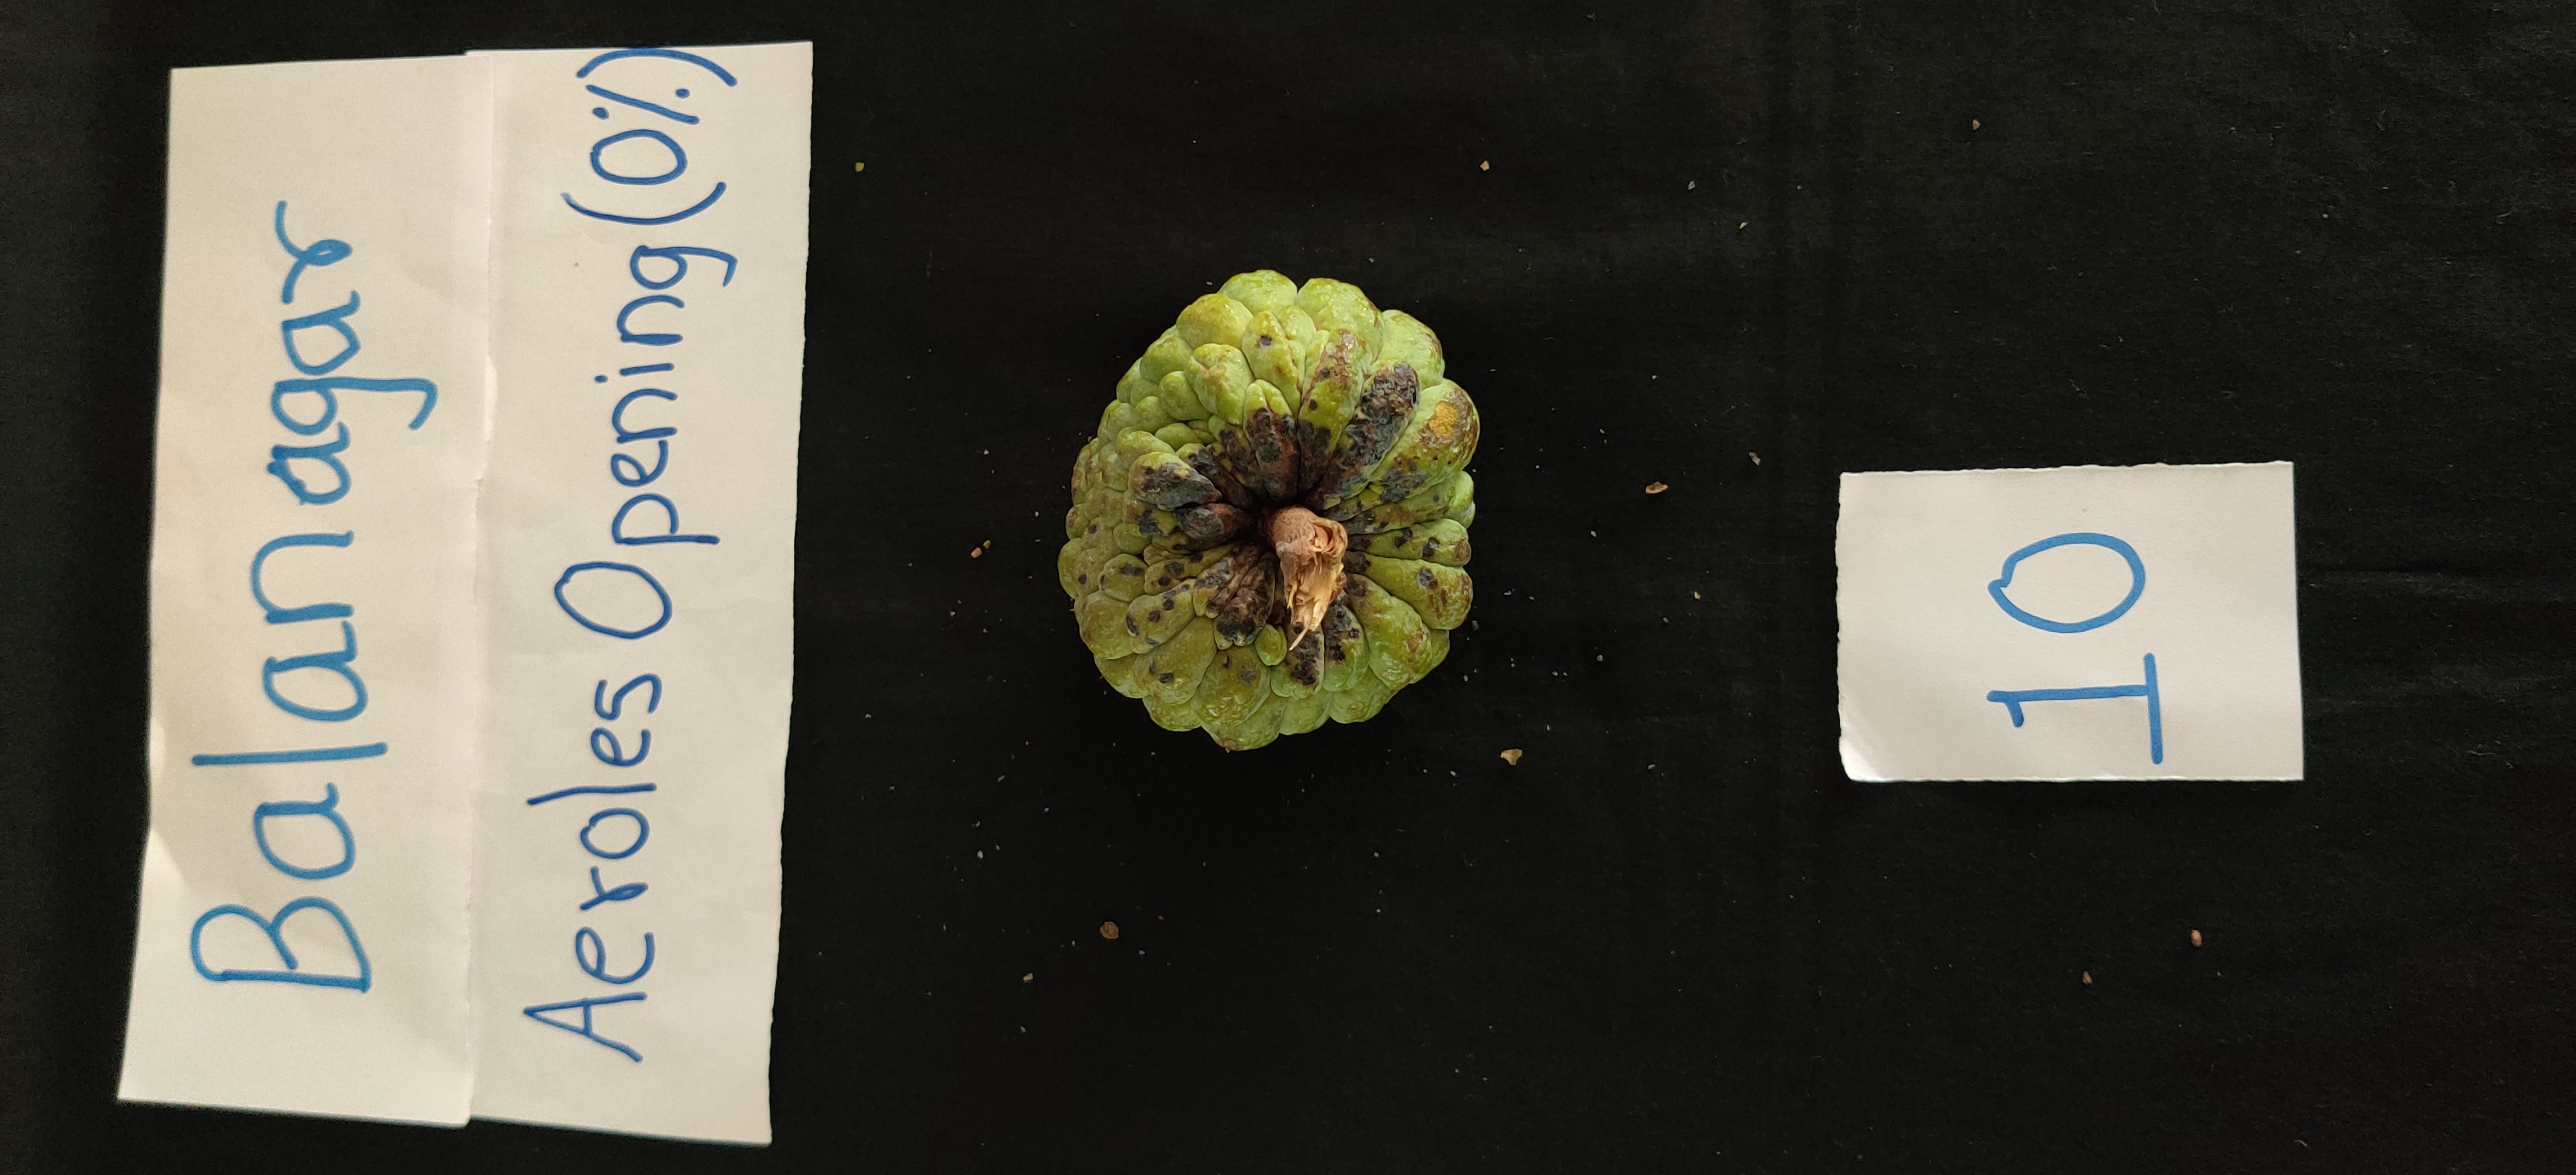 Balanagar
Aeroles Opening(0%)
10